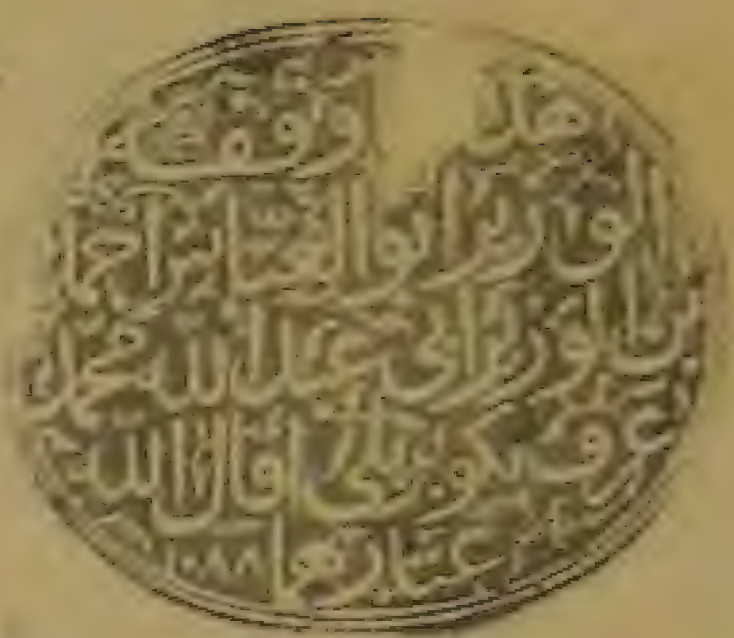 هذ وقفه
الوزير ابو العباس احمد
بن الوزير ابى عبد الله محمد
عرف بكوبريلى اقال الله
عثارهما ١٠٨٨